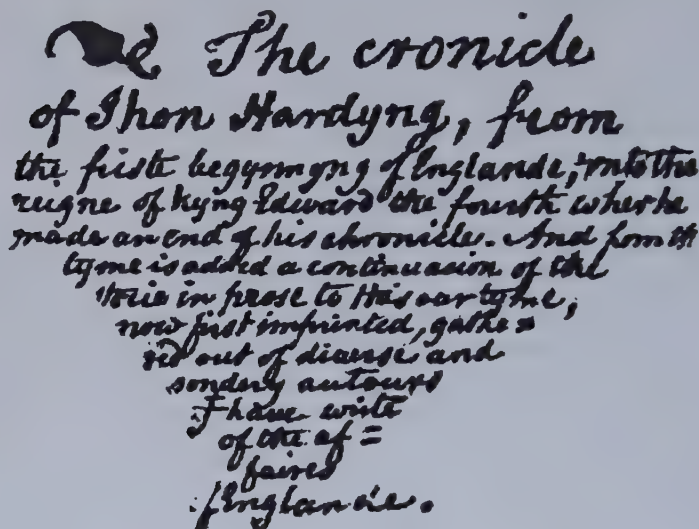 The cronicle
of Ihon Hardyng, from
the firste begynnyng of Englande, vnto the
reigne of kyng Edward the fourth wher he
made an end of his chronicle. And from th
tyme is added a continuacion of the
storie in prose to this our tyme,
now first imprinted, gathe=
red out of diuerse and
sondery autours
I haue write
of the af=
faires
of Englande.